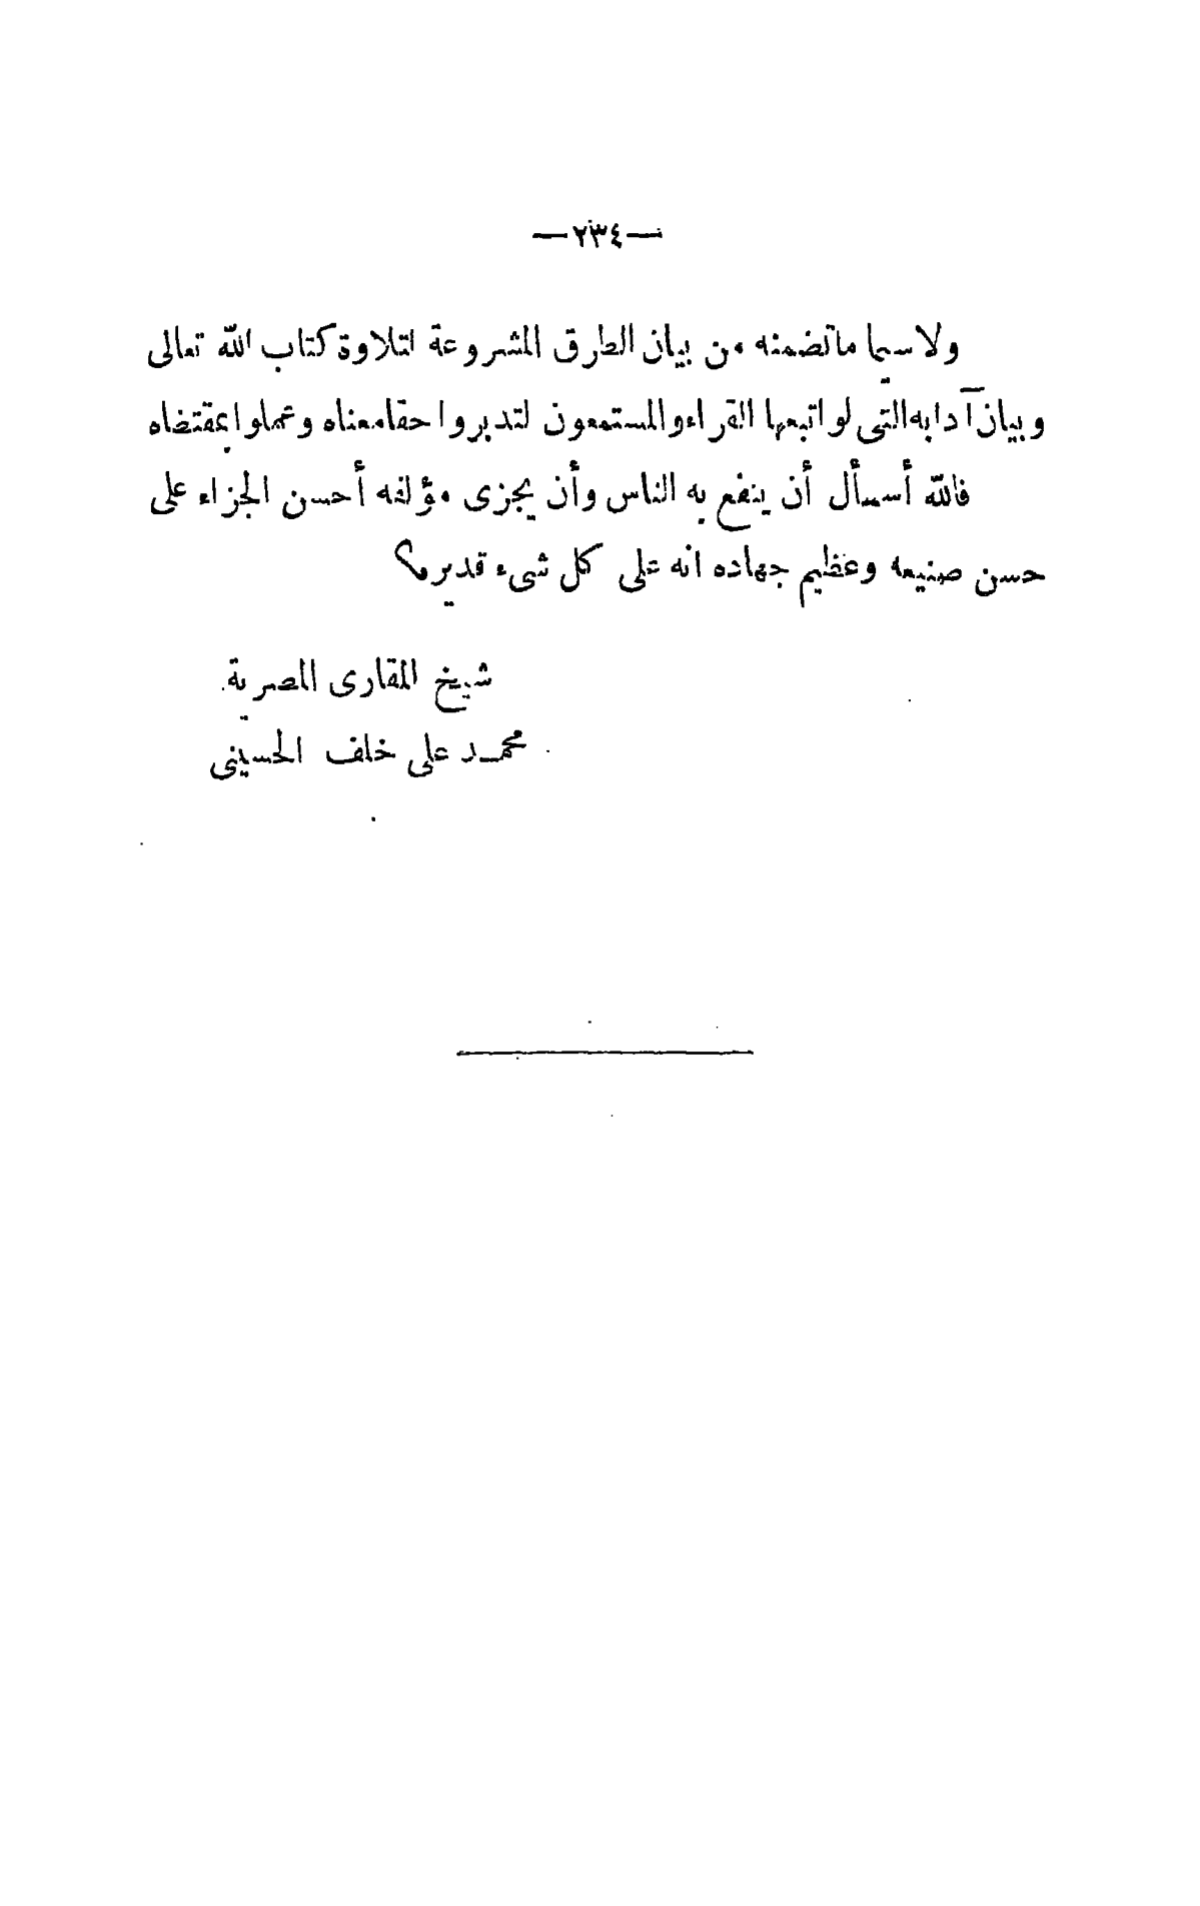 —٢٣٤—
ولا سيما ما تضمنه من بيان الطرق المشروعة لتلاوة كتاب الله تعالى
وبيان آدابه التى لو اتبعها القراء والمستمعون لتدبروا حقا معناه وعملوا بمقتضاه
فالله أسأل أن ينفع به الناس وأن يجزى مؤلفه أحسن الجزاء على
حسن صنيعه وعظيم جهاده انه على كل شىء قدير
شيخ المقارى المصرية
محمد على خلف الحسينى